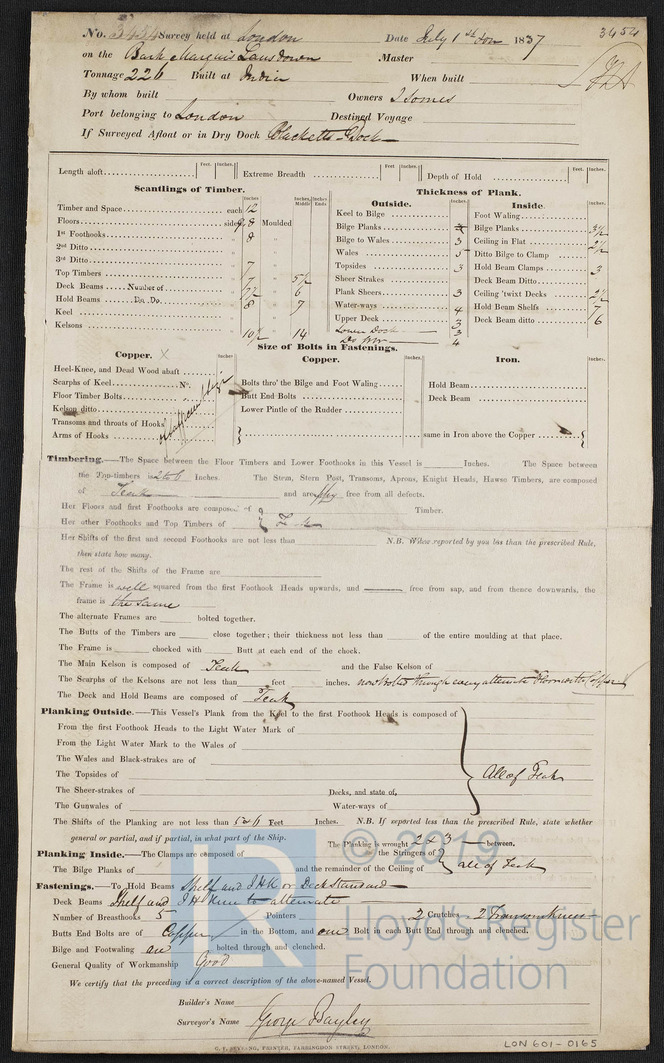 No. 3454 Survey held at London Date July 1st 1837 3454
on the Bark Marquis Lansdown Master
Tonnage 226 Built at India When built
By whom built Owners J Somes
Port belonging to London Destined Voyage
If Surveyed Afloat or in Dry Dock Blacketts Dock
Length aloft Feet. Inches. Extreme Breadth Feet. Inches. Depth of Hold Feet. Inches.
Scantlings of Timber.
Inches Inches Middle Inches Ends
Timber and Space each 12
Floors sided 8 Moulded
1st Foothooks 8
2nd Ditto
3rd Ditto 7
Top Timbers 7 5½
Deck Beams Number of 7½ 6
Hold Beams Do. Do. 8 7
Keel
Kelsons 10½ 14
Thickness of Plank.
Outside. Inches.
Keel to Bilge
Bilge Planks 3
Bilge to Wales 3
Wales 5
Topsides 3
Sheer Strakes
Plank Sheers 3
Water-ways 4
Upper Deck 3
Lower Dock 3
Do 4
Inside. Inches.
Foot Waling
Bilge Planks 3½
Ceiling in Flat 2½
Ditto Bilge to Clamp
Hold Beam Clamps 3
Deck Beam Ditto
Ceiling 'twixt Decks 2½
Hold Beam Shelfs 7
Deck Beam ditto 6
Size of Bolts in Fastenings.
Copper. X Inches
Heel-Knee, and Dead Wood abaft
Scarphs of Keel No.
Floor Timber Bolts
Kelson ditto
Transoms and throats of Hooks
Arms of Hooks
Copper. Inches
Bolts thro' the Bilge and Foot Waling
Butt End Bolts
Lower Pintle of the Rudder
Iron. Inches
Hold Beam
Deck Beam
same in Iron above the Copper
Timbering.—The Space between the Floor Timbers and Lower Foothooks in this Vessel is Inches. The Space between
the Top-timbers is 2 to 6 Inches. The Stem, Stern Post, Transoms, Aprons, Knight Heads, Hawse Timbers, are composed
of Teak and are free from all defects.
Her Floors and first Foothooks are composed of Timber.
Her other Foothooks and Top Timbers of } Teak
Her Shifts of the first and second Foothooks are not less than N.B. When reported by you less than the prescribed Rule,
then state how many.
The rest of the Shifts of the Frame are
The Frame is well squared from the first Foothook Heads upwards, and free from sap, and from thence downwards, the
frame is the same
The alternate Frames are bolted together.
The Butts of the Timbers are close together; their thickness not less than of the entire moulding at that place.
The Frame is chocked with Butt at each end of the chock.
The Main Kelson is composed of Teak and the False Kelson of
The Scarphs of the Kelsons are not less than feet inches. now bolted through every alternate floor with Copper
The Deck and Hold Beams are composed of Teak
Planking Outside.—This Vessel's Plank from the Keel to the first Foothook Heads is composed of
From the first Foothook Heads to the Light Water Mark of
From the Light Water Mark to the Wales of
The Wales and Black-strakes are of
The Topsides of } All of Teak
The Sheer-strakes of Decks, and state of,
The Gunwales of Water-ways of
The Shifts of the Planking are not less than 5 to 6 Feet Inches. N.B. If reported less than the prescribed Rule, state whether
general or partial, and if partial, in what part of the Ship. The Planking is wrought 2 & 3 between.
Planking Inside.—The Clamps are composed of the Stringers of
The Bilge Planks of and the remainder of the Ceiling of } all of Teak
Fastenings.—To Hold Beams Shelf and I H K or Deck Standard
Deck Beams Shelf and I H Knee to alternate
Number of Breasthooks 5 Pointers 2 Crutches 2 Transom knees
Butts End Bolts are of Copper in the Bottom, and one Bolt in each Butt End through and clenched.
Bilge and Footwaling are bolted through and clenched.
General Quality of Workmanship Good
We certify that the preceding is a correct description of the above-named Vessel.
Builder's Name
Surveyor's Name George Bayley
PRINTER, FARRINGDON STREET, LONDON.
LON 601-0165
© 2019
LR
Lloyd's Register
Foundation